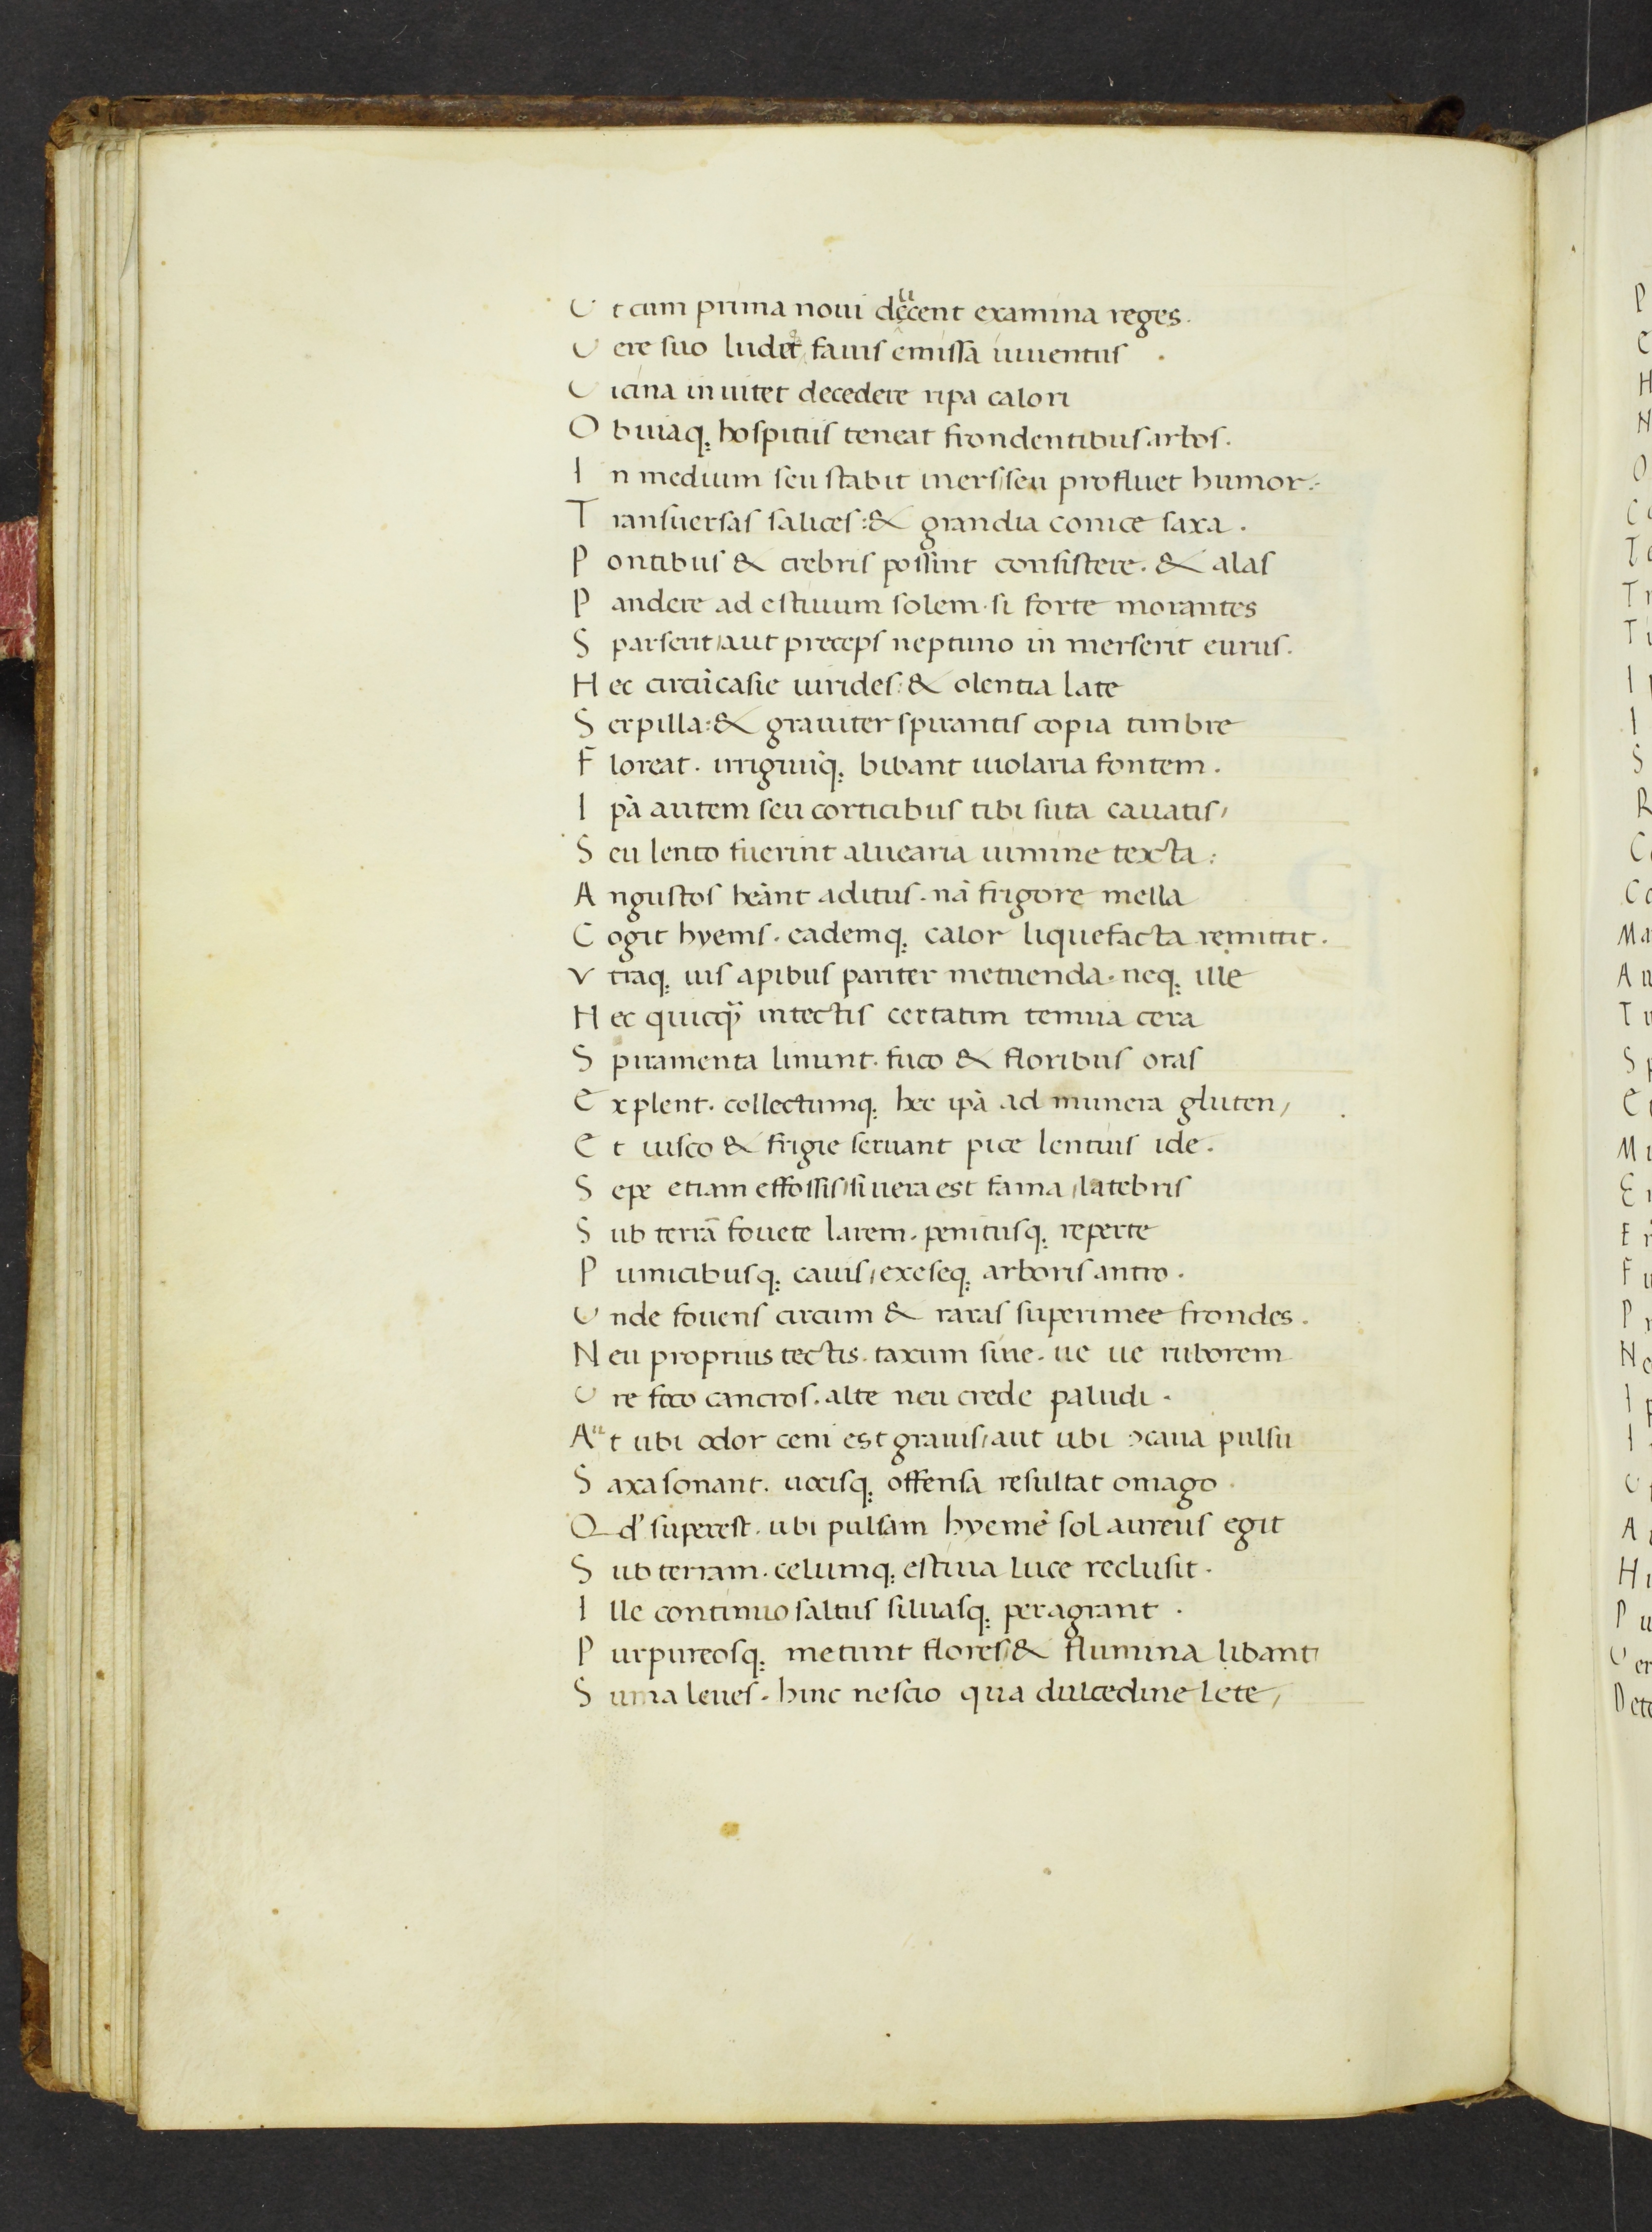 U t cum prima noui ducent examina reges.
U ere suo ludet fauis emissa iuuentus
U icina inuitet decedere ripa calori
O buiaq; hospitiis teneat frondentibus arbos.
I n medium seu stabit iners, seu profluet humor:
T ransuersas salices: & grandia conice saxa.
P ontibus & crebris possint consistere. & alas
P andere ad estiuum solem. si forte morantes
S parserit, aut preceps neptuno in merserit eurus.
H ec circũ casie uirides: & olentia late
S erpilla: & grauiter spirantis copia timbre
F loreat. irriguũq; bibant uiolaria fontem.
I pã autem seu corticibus tibi suta cauatis,
S eu lento fuerint aluearia uimine texta:
A ngustos heãnt aditus. nã frigore mella
C ogit hyems. eademq; calor liquefacta remittit.
V traq; uis apibus pariter metuenda. neq; ille
H ec quicq̃ intectis certatim temua cera
S piramenta linunt. fuco & floribus oras
E xplent. collectumq; hec ipã ad munera gluten,
E t uisco & frigie seruant pice lentius ide.
S epe etiam effossis, si uera est fama, latebris
S ub terrã fouete larem. penitusq; reperte
P umicibusq; cauis, exeseq; arboris antro.
U nde fouens circum & raras superimee frondes.
N eu proprius tectis. taxum sine. ue ue ruborem
U re foco cancros. alte neu crede paludi.
A ut ubi odor ceni est grauis, aut ubi ɔcaua pulsu
S axa sonant. uocisq; offensa resultat omago.
Q d' superest. ubi pulsam hyemẽ sol aureus egit
S ub terram. celumq; estiua luce reclusit.
I lle continuo saltus siluasq; peragrant.
P urpureosq; metunt flores, & flumina libant,
S uma leues. hinc nescio qua dulcedine lete,